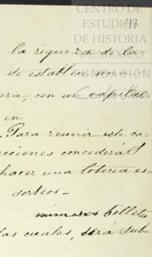 CENTRO DE
ESTUDIOS
DE HISTORIA
DE MEXICO
FUNDACIÓN
la riqueza de la
se establece
ura, con un capital
en
Para reunir este ca-
cciones concederá
hacer una loteria es-
sorteos.
billetes
las cuales, será sub-